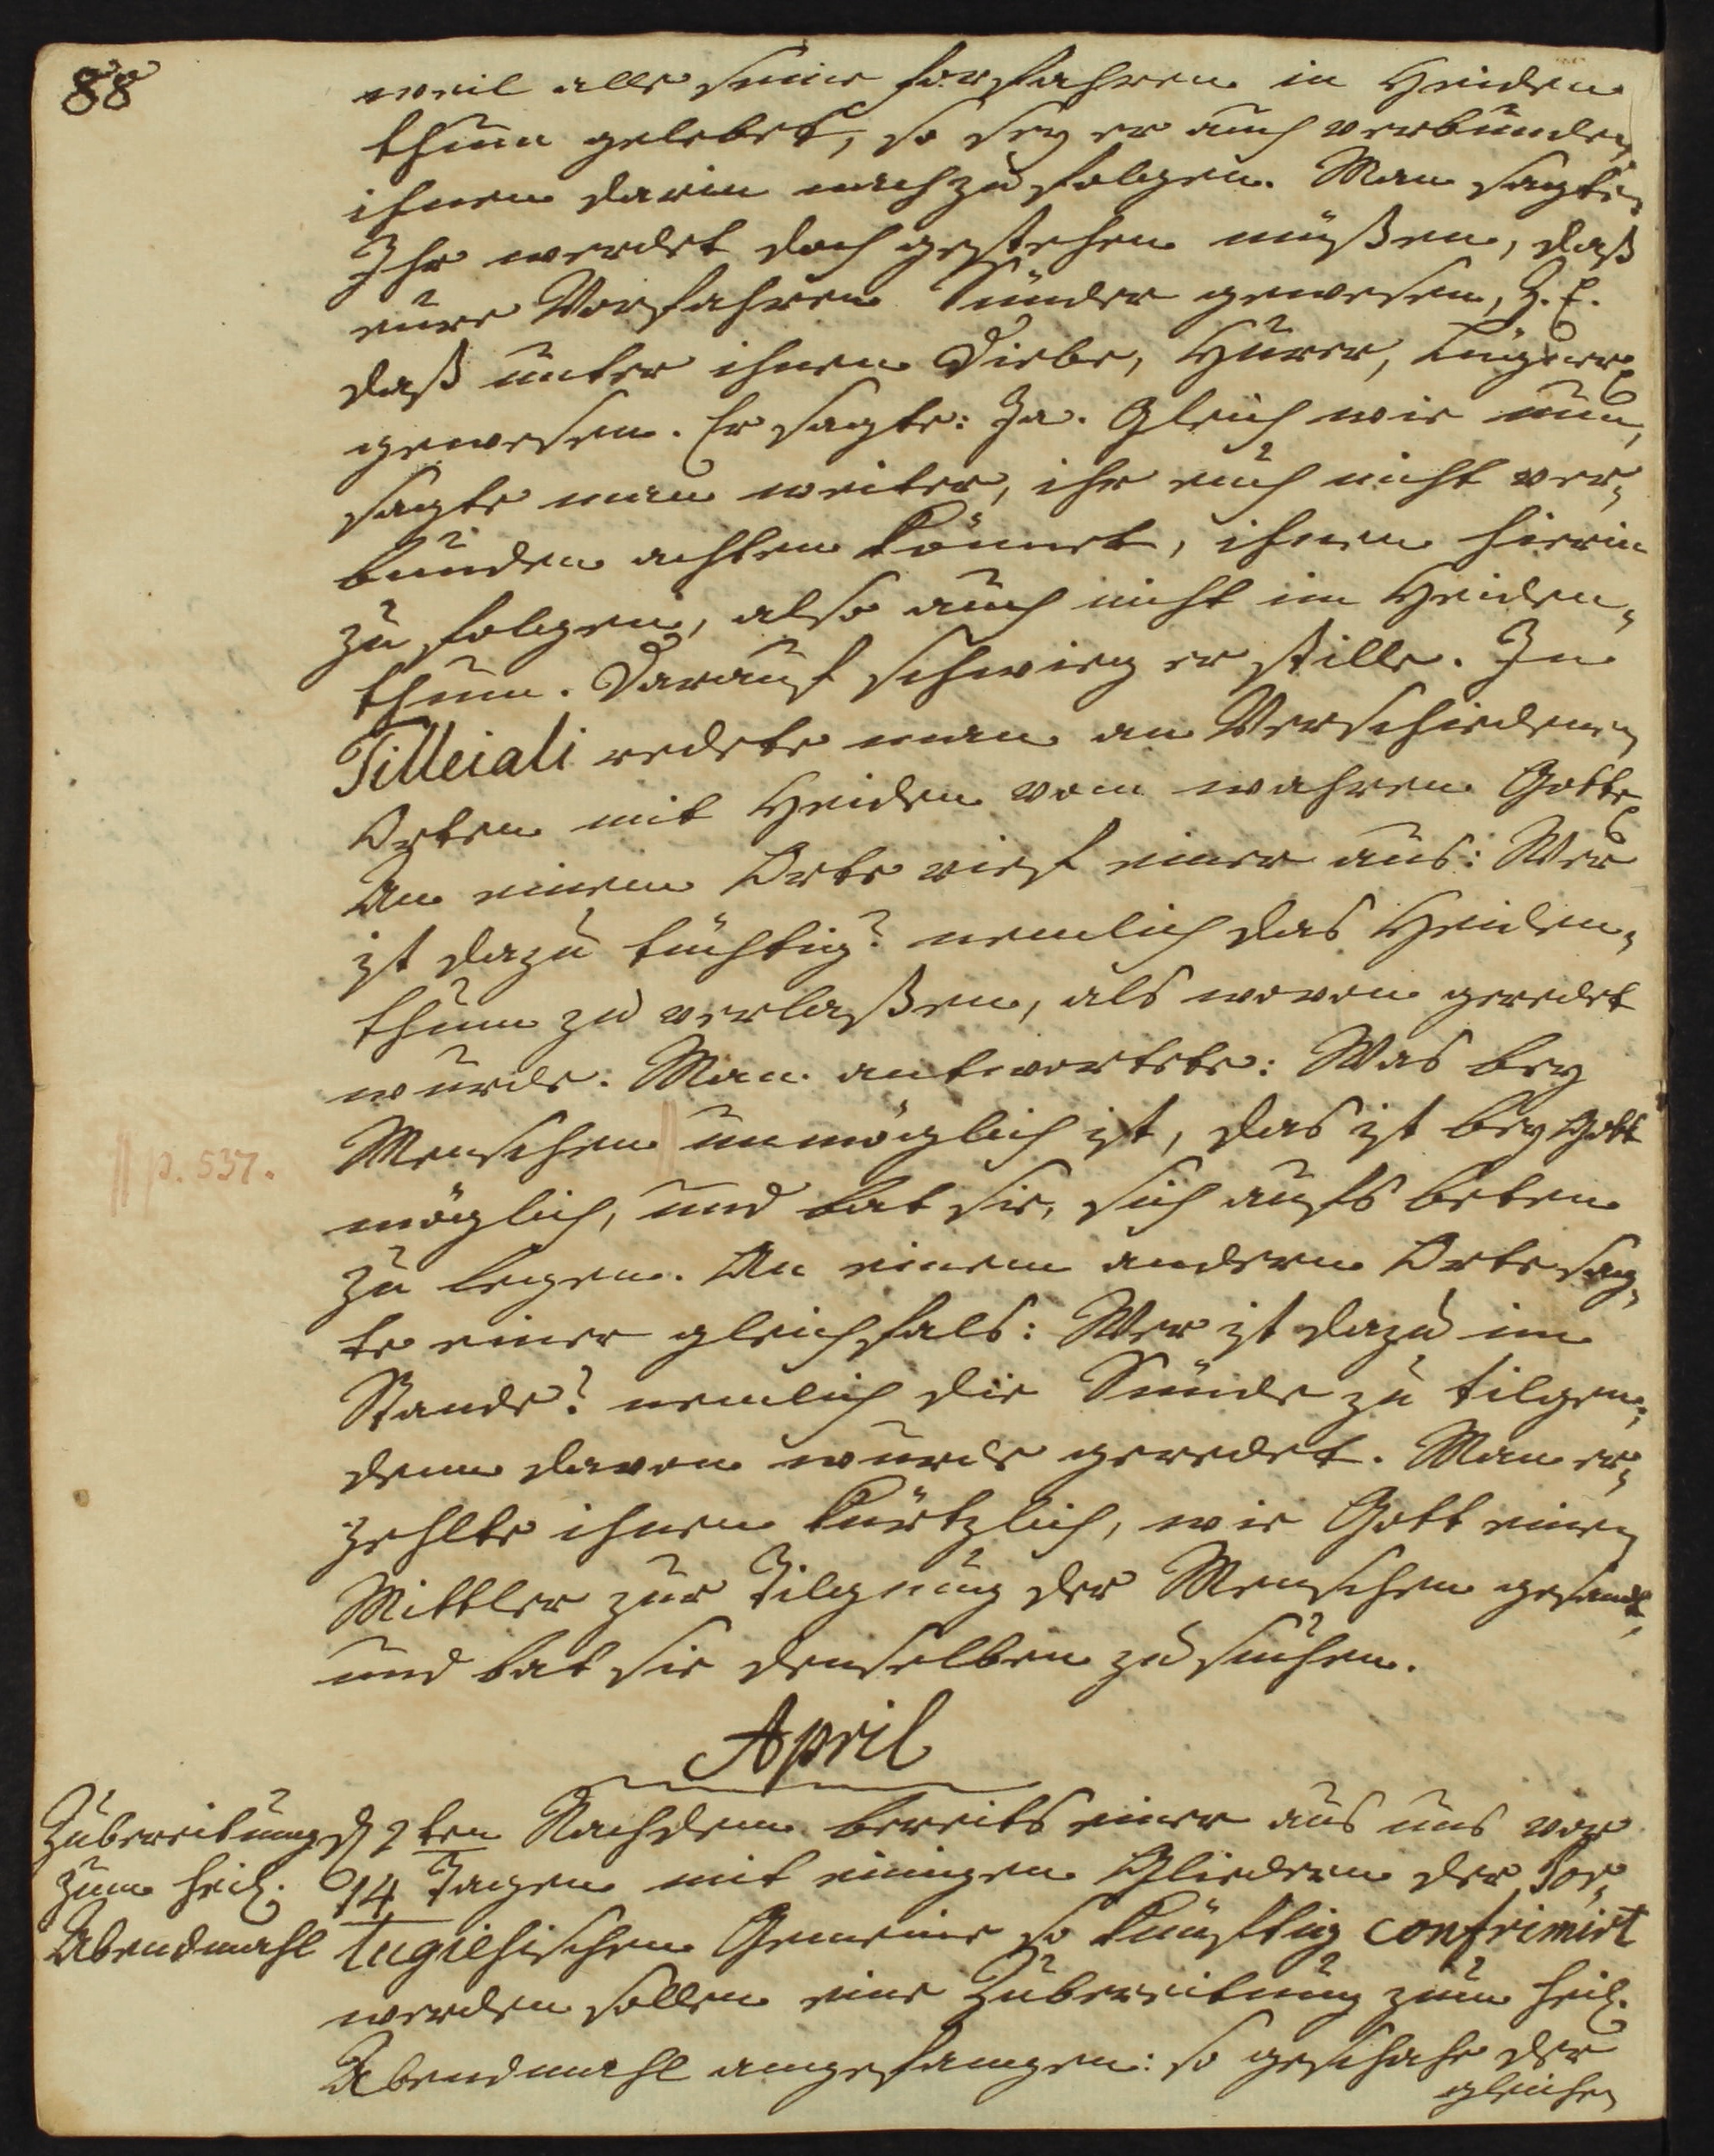 88
weil alle seine forfahren in Heiden
thum gelebet, so sey er auch verbunden
ihnen darin nachzufolgen. Man sagte:
Ihr werdet doch gestehen müßen, daß
eure Vorfahren Sünder gewesen, Z. E.
daß unter ihnen Diebe, Hurer, Lügner
gewesen. Er sagte: Ja. Gleich wie nun,
sagte man weiter, ihr euch nicht ver„
bunden achten könnet, ihnen hierin
zu folgen, also auch nicht im Heiden„
thum. Darauf schwieg er stille. In
Tilleiali redete man an Verschiedenen
Orten mit Heiden vom wahren Gotte
An einem Orte rief einer aus: Wer
ist dazu tüchtig? nemlich das Heiden„
thum zu verlaßen, als wovon geredet
wurde. Man antwortete: Was bey
Menschen || unmöglich ist, das ist bey Gott
|| p. 537.
möglich, und bat sie, sich aufs beten
zu legen. An einem andern Orte sag„
te einer gleichfals: Wer ist dazu im
Stande? nemlich die Sünde zu tilgen;
denn davon wurde geredet. Man er„
zehlte ihnen kürtzlich, wie Gott einen
Mittler zur Tilgung der Menschen gesandt,
und bat sie denselben zu suchen.
April
Zubereitung
zum heil.
Abendmahl
d 2ten Nachdem bereits einer aus uns vor
14 Tagen mit einigen Gliedern der Por„
tugiesischen Gemeine so künftig confrimirt
werden sollen eine Zubereitung zum heil.
Abendmahl angefangen: so geschahe der
gleichen